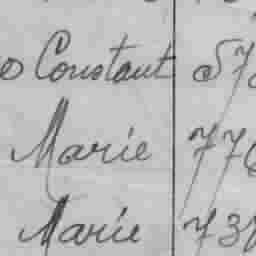 Constant 57
Marie 776
Marie 737